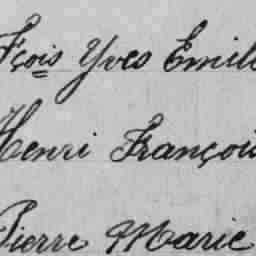 Fçois Yves Emile
Henri François
Pierre Marie